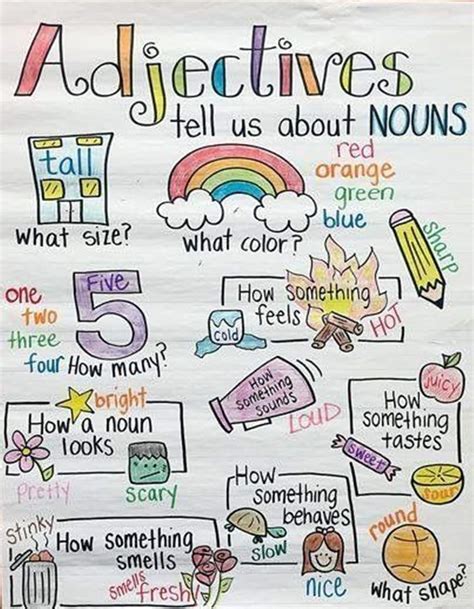 Adjectives
tell us about NOUNS
tall
What size?
What color?
red
orange
green
blue
sharp
one
two
three
four
Five
5
How many?
How something
feels
cold
HOT
bright
How a noun
looks
Pretty
scary
How
something
sounds
LOUD
juicy
How
something
tastes
sweet
sour
Stinky
How something
smells
smells
fresh
How
something
behaves
slow
nice
round
What shape?